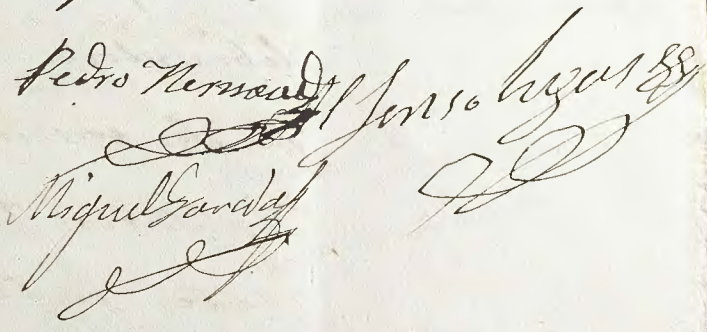 Pedro Hernand Alfonso
Miguel Garcia